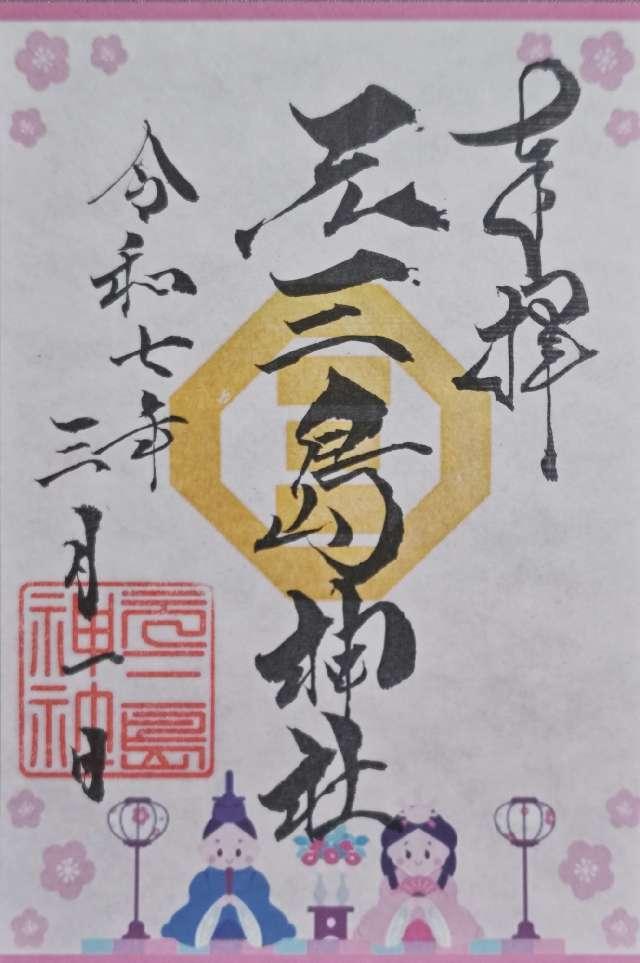 奉拝
元三島神社
令和七年
三月一日
元三島
神社